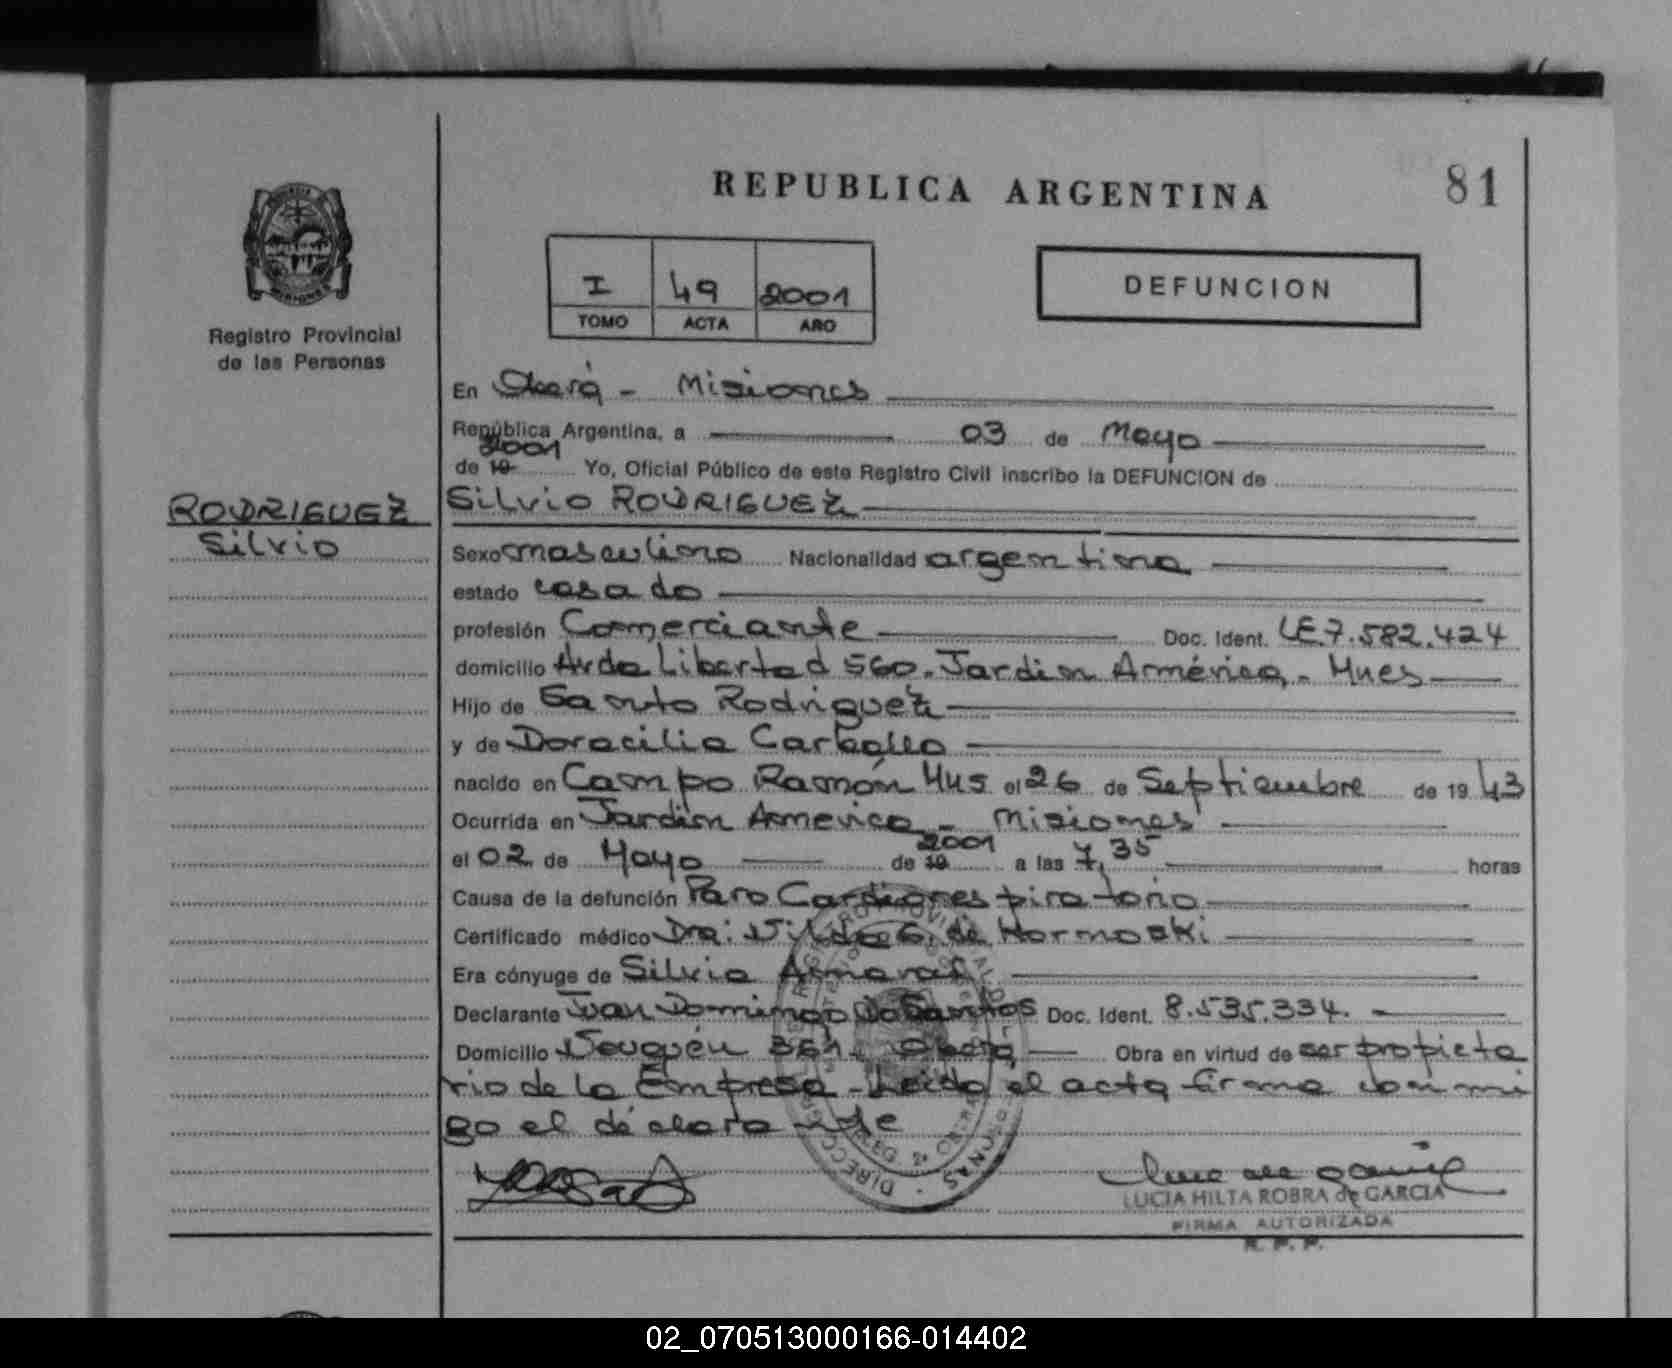 REPUBLICA ARGENTINA
81
I 49 2001
TOMO ACTA AÑO
DEFUNCION
Registro Provincial
de las Personas
En Oberá - Misiones
República Argentina, a 03 de Mayo
2001
de 19 Yo, Oficial Público de este Registro Civil inscribo la DEFUNCION de
RODRIGUEZ
Silvio
Silvio RODRIGUEZ
Sexo masculino Nacionalidad argentina
estado casado
profesión Comerciante Doc. Ident. LE 7.582.424
domicilio Avda Libertad 560. Jardin América - Mnes
Hijo de Santo Rodriguez
y de Doracilia Carballo
nacido en Campo Ramón Mns el 26 de Septiembre de 19 43
Ocurrida en Jardin America - Misiones
2001
el 02 de Mayo de 19 a las 7,35 horas
Causa de la defunción Paro Cardiorespiratorio
Certificado médico Dra: de Hormoski
Era cónyuge de Silvia Amaral
Declarante Juan Domingo Do Santos Doc. Ident. 8.535.334.
Domicilio Neuquén Oberá Obra en virtud de ser propieta
rio de la Empresa - Leída el acta firma conmi
go el declarante
LUCIA HILTA ROBRA de GARCIA
FIRMA AUTORIZADA
R. P. P.
02_070513000166-014402